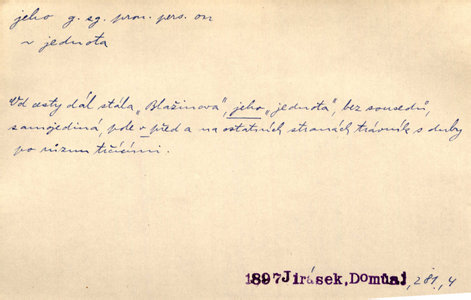 jeho g. sg. pron. pers. on
~ jednota
Od cesty dál stála „Blažinova", jeho „jednota", bez sousedů,
samojediná, pole v před a na ostatních stranách trávník s duby
po různu trčícími.
1897 Jirásek, Domů a j , 281, 4